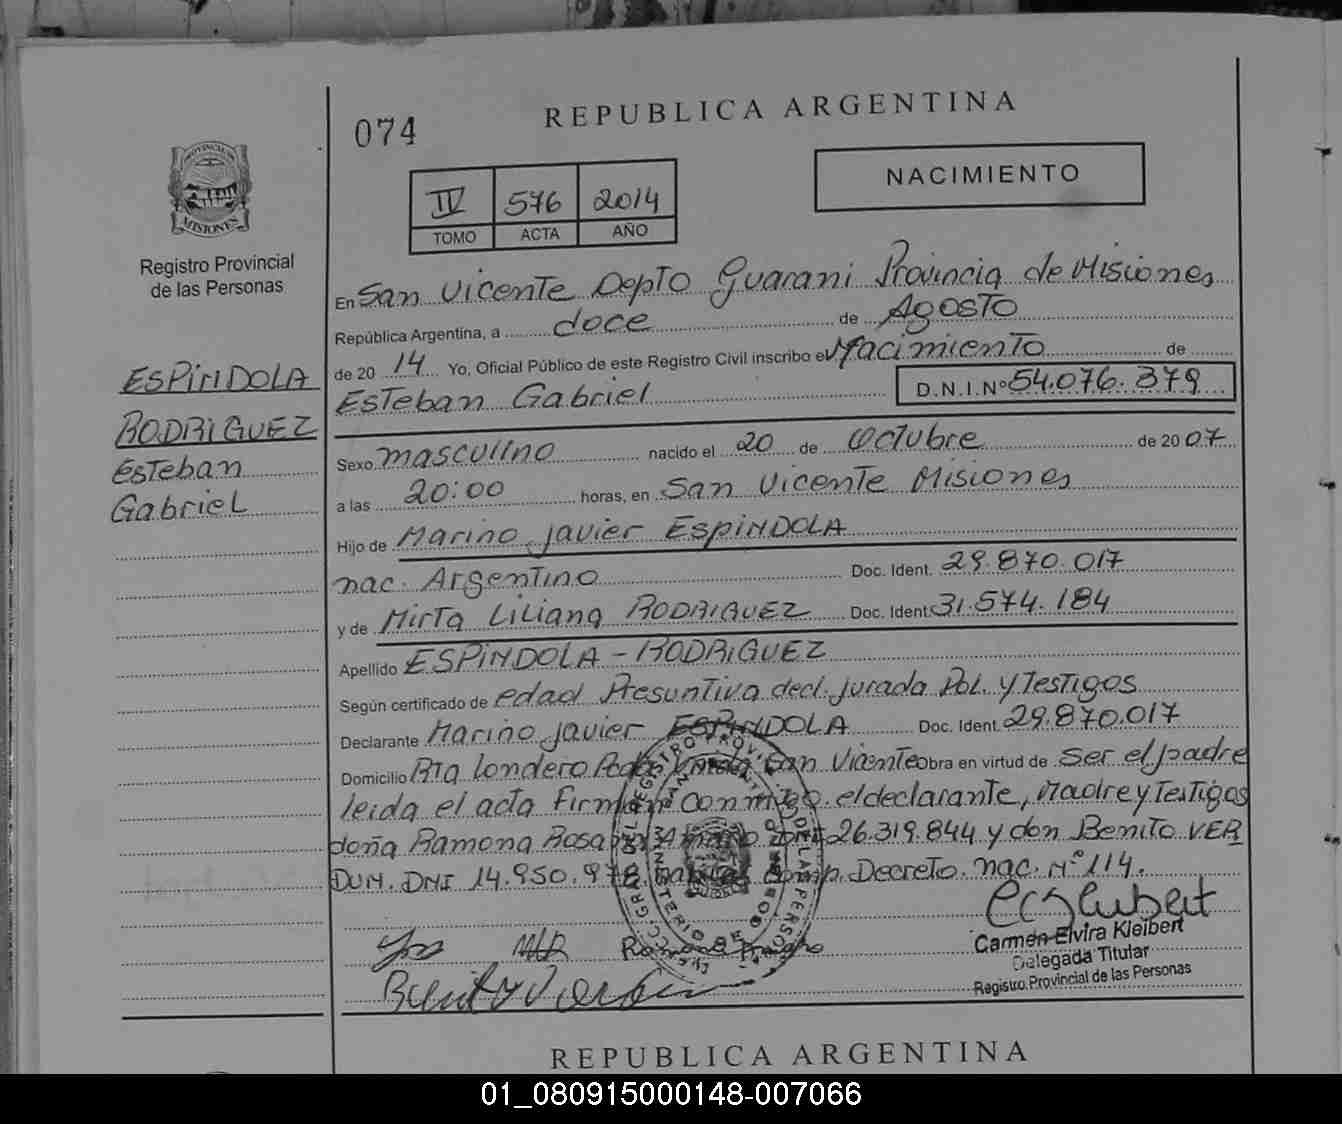 074
REPUBLICA ARGENTINA
PROVINCIA DE
MISIONES
Registro Provincial
de las Personas
IV 576 2014
TOMO ACTA AÑO
NACIMIENTO
En San Vicente Depto Guarani Provincia de Misiones
República Argentina, a doce de Agosto
de 20 14 Yo, Oficial Público de este Registro Civil inscribo el Nacimiento de
Esteban Gabriel D.N.I.Nº 54.076.379
ESPINDOLA
RODRIGUEZ
Esteban
Gabriel
Sexo masculino nacido el 20 de Octubre de 2007
a las 20:00 horas, en San Vicente Misiones
Hijo de Marino Javier ESPINDOLA
nac. Argentino Doc. Ident. 29.870.017
y de Mirta Liliana RODRIGUEZ Doc. Ident. 31.574.184
Apellido ESPINDOLA - RODRIGUEZ
Según certificado de edad Presuntiva decl. jurada Pol. y Testigos
Declarante Marino Javier ESPINDOLA Doc. Ident. 29.870.017
Domicilio San Vicente Obra en virtud de Ser el padre
leida el acta Firman conmigo el declarante, Madre y Testigos
doña Ramona Rosa 26.319.844 y don Benito VER
DUN. DNI 14.950.978 Decreto. nac. Nº 114.
Carmen Elvira Kleibert
Delegada Titular
Registro Provincial de las Personas
REPUBLICA ARGENTINA
01_080915000148-007066